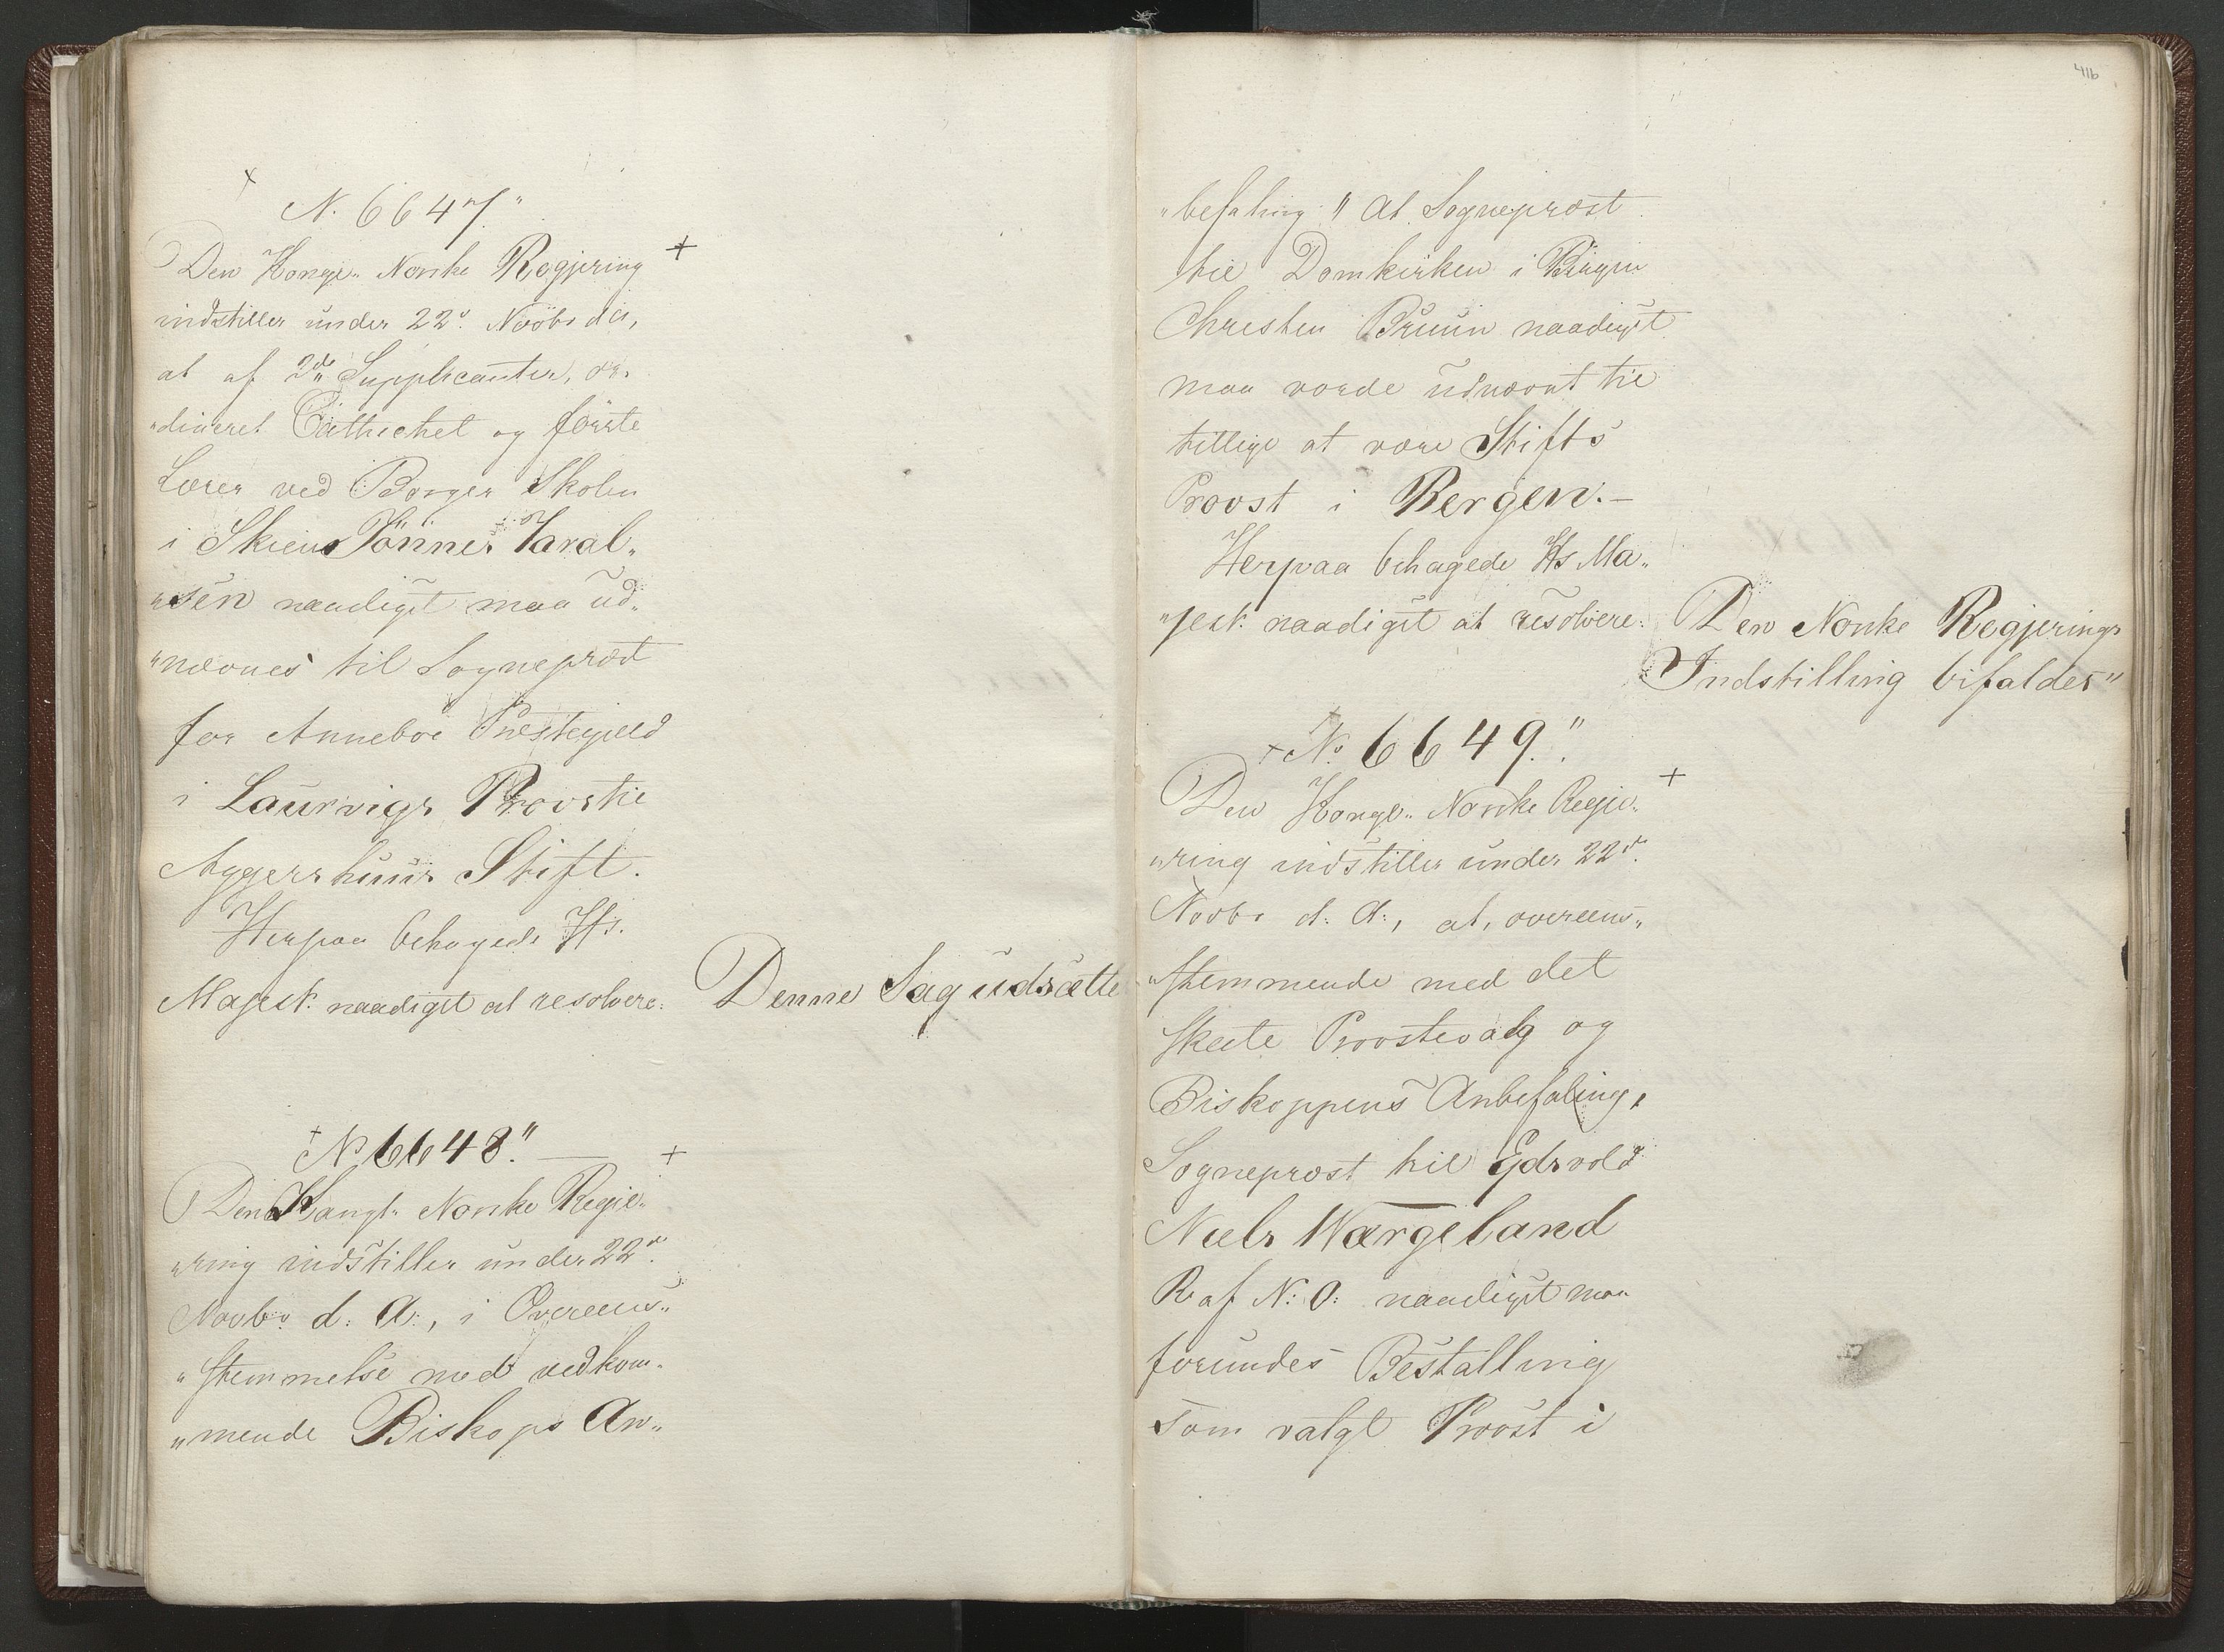 N. 6647."
Den Kongl. Norske Regjering +
indstiller under 22d. Novbr d. A.,
at af 2de Supplicanter, or-
"dineret Cathechet og förste
Lærer ved Borger Skolen
i Skien Jönnes Taral-
"sen naadigst maa ud-
"nævnes til Sognepræst
for Anneboe Præstegjeld
i Laurvigs Provstie
Aggershuus Stift.
Herpaa behagede Hs.
Majest. naadigst at resolvere: Denne Sag udsætte
No 6648."
Den Kongl. Norske Regje-
"ring indstiller under 22d.
Novbr. d: A:, i Overeens-
"stemmelse med vedkom-
"mende Biskops An-
416
"befaling " at Sognepræst
til Domkirken i Bergen
Christen Bruun naadigst
maa vorde udnævnt til
tillige at være Stifts
Provst i Bergen.—
Herpaa behagede Hs Ma-
"jest. naadigst at resolvere: Den Norske Regjerings
Indstilling bifaldes"
+ No 6649."
Den Kongl. Norske Regje- +
"ring indstiller under 22d.
Novbr d: A:, at, overeens-
"stemmende med det
skeete Provstevalg og
Biskoppens Anbefaling,
Sognepræst til Edsvold
Niels Wærgeland
R af N: O: naadigst maa
forundes Bestalling
som valgt Provst i